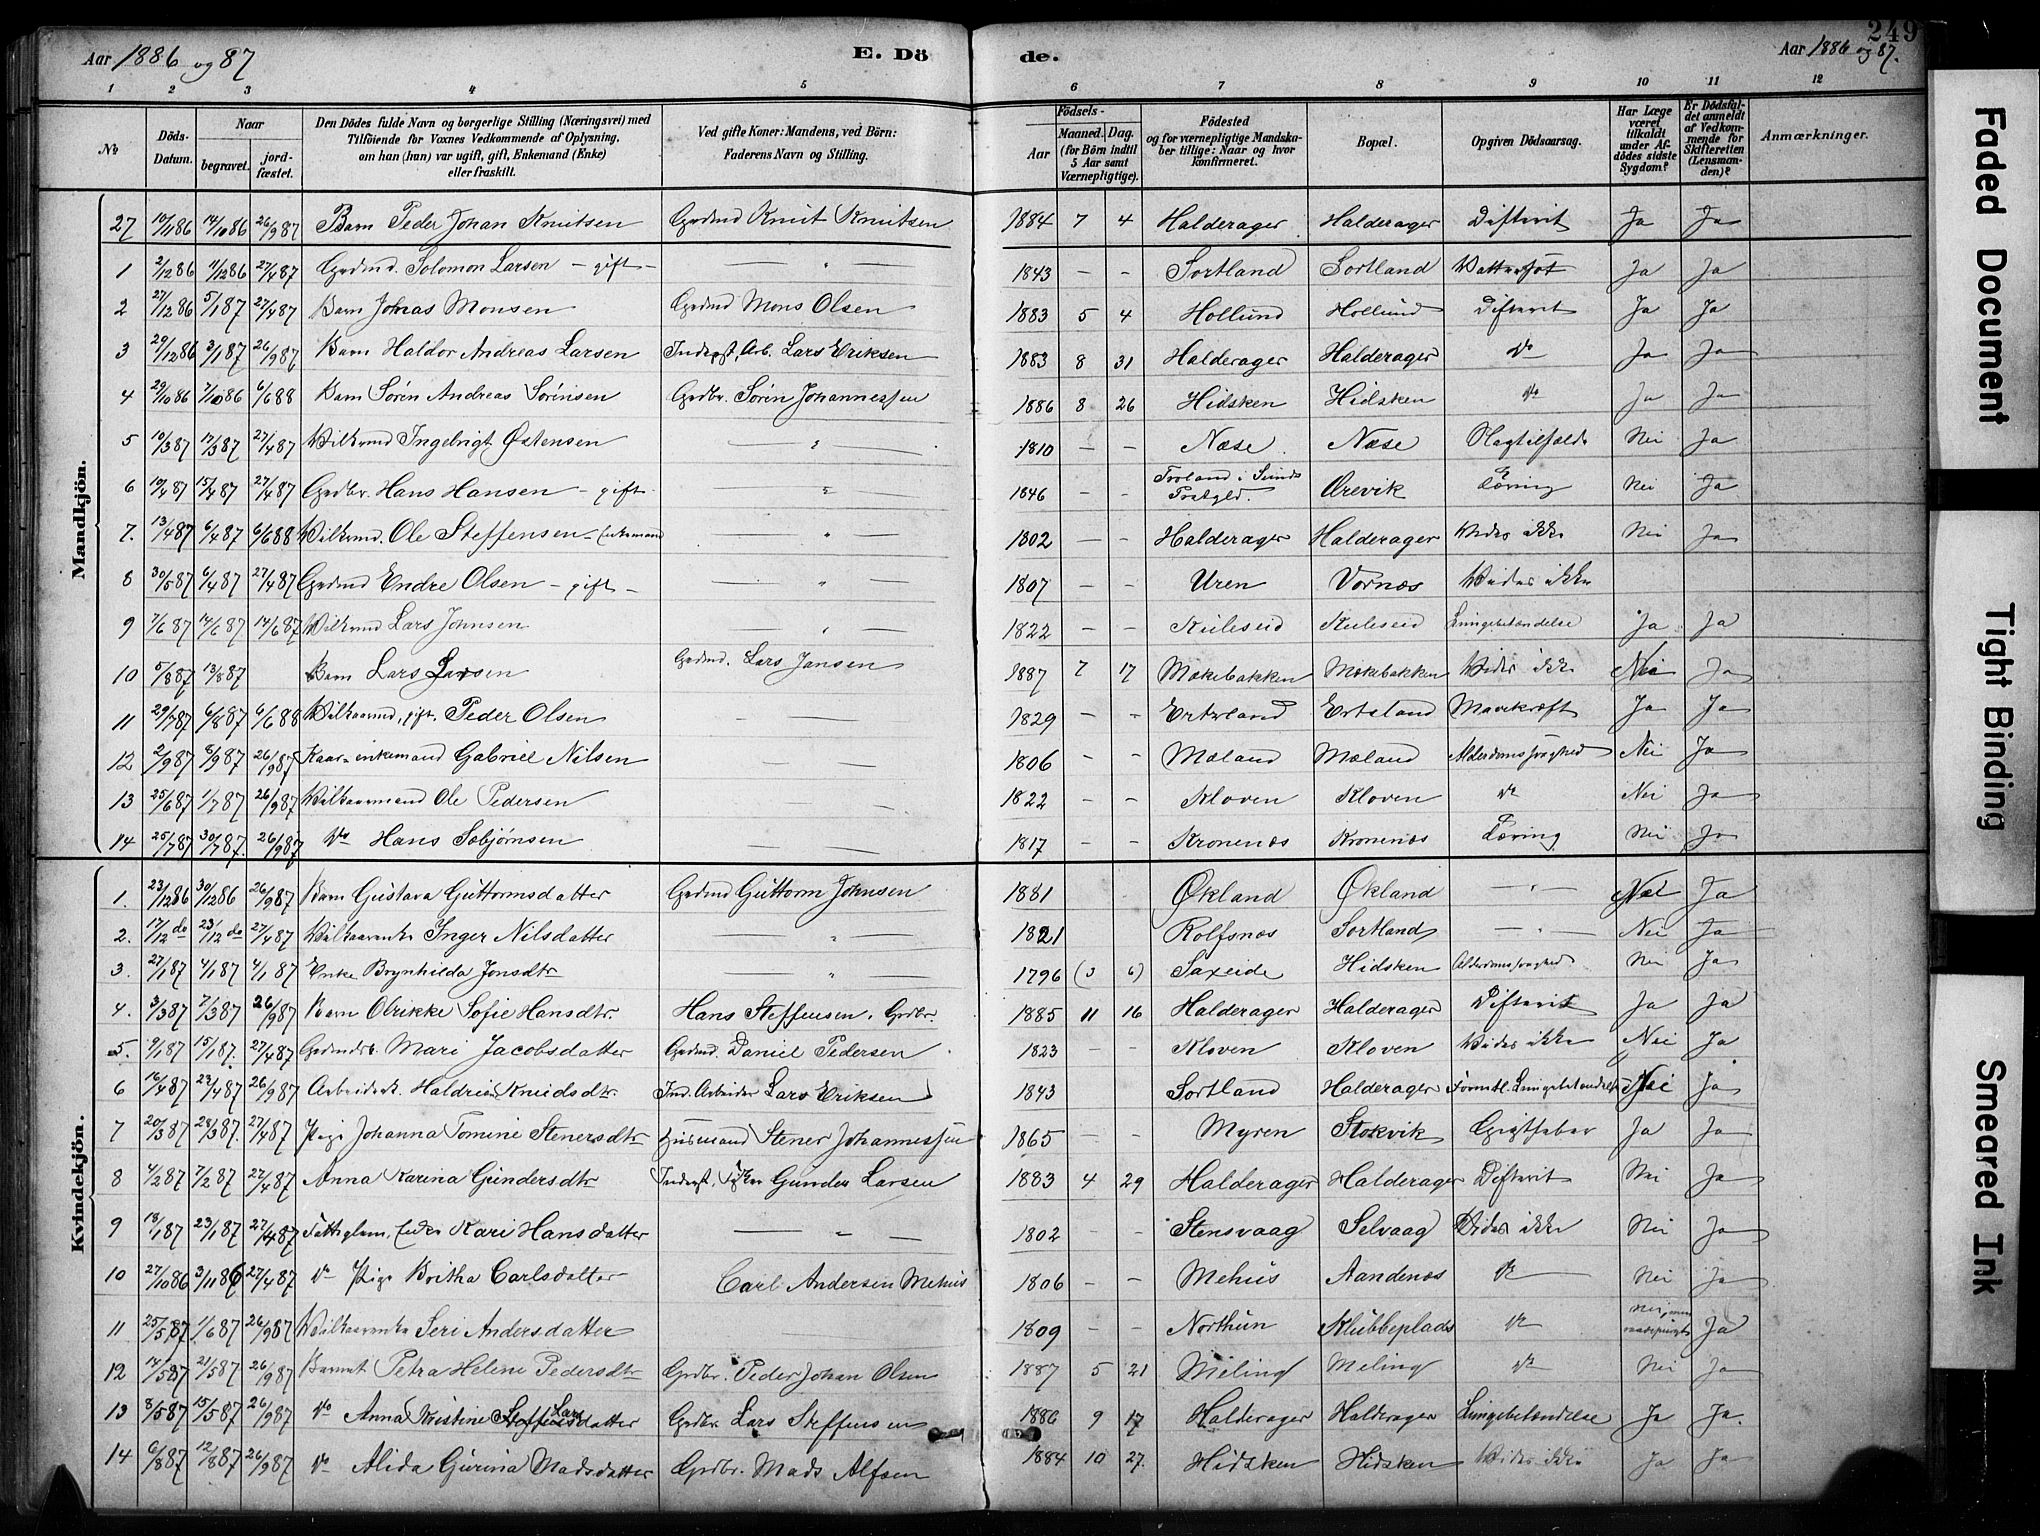 249
Aar 1886 og 87 E. Dö
de. Aar 1886 og 87.
1 2 3 4 5 6 7 8 9 10 11 12
№
Döds-Datum.
Naar
begravet.
jord-fæstet.
Den Dödes fulde Navn og borgerlige Stilling (Næringsvei) med
Tilföiende for Voxnes Vedkommende af Oplysning,
om han (hun) var ugift, gift, Enkemand (Enke)
eller fraskilt.
Ved gifte Koner: Mandens, ved Börn:
Faderens Navn og Stilling.
Födsels-
Aar
Maaned. Dag.
(for Börn indtil
5 Aar samt
Værnepligtige).
Födested
og for værnepligtige Mandska-
ber tillige: Naar og hvor
konfirmeret.
Bopæl.
Opgiven Dödsaarsag.
Har Læge
været
tilkaldt
under Af-
dödes sidste
Sygdom?
Er Dödsfal-
det anmeldt
af Vedkom-
mende for
Skifteretten
(Lensman-
den)?
Anmærkninger.
Mandkjön.
27 10/11 86 14/10 86 26/9 87 Barn Peder Johan Knutsen Grdmd Knut Knutsen 1884 7 4 Halderager Halderager Difterit Ja Ja
1 2/12 86 11/12 86 27/4 87 Grdmd. Solomon Larsen - gift - — " — 1843 - - Sortland Sortland Vattersot Ja Ja
2 27/12 86 5/1 87 27/4 87 Barn Johnas Monsen Grdmd Mons Olsen 1883 5 4 Hollund Hollund Difterit Ja Ja
3 29/12 86 3/1 87 26/9 87 Barn Haldor Andreas Larsen Inderst, Arb. Lars Eriksen 1883 8 31 Halderager Halderager do Ja Ja
4 29/10 86 7/10 86 6/6 88 Barn Sören Andreas Sörensen Grdbr. Sören Johannessen 1886 8 26 Hidsken Hidsken do Ja Ja
5 10/3 87 17/3 87 27/4 87 Vilkmd Ingebrigt Østensen — " — 1810 - - Næse Næse Slagtilfælde Nei Ja
6 10/4 87 15/4 87 27/4 87 Grdbr. Hans Hansen - gift - — " — 1846 - - Troland i Sunds Prstgld. Ørevik Tæring Nei Ja
7. 13/4 87 6/4 87 6/6 88 Vilkmd. Ole Steffensen - Enkemand — " — 1802 - - Halderager Halderager Vides ikke Nei Ja
8 30/5 87 6/4 87 27/4 87 Grdmd Endre Olsen - gift - — " — 1807 - - Uren Vornæs Vides ikke
9 7/6 87 14/6 87 14/6 87 Vilkmd Lars Johnsen — " — 1822 - - Kuleseid Kuleseid Lungebetændelse Ja Ja
10 5/8 87 13/8 87 Barn Lars Larsen Grdmd. Lars Jansen 1887 7 17 Mækebakken Mækebakken Vides ikke Nei Ja
11 29/7 87 6/8 87 6/6 88 Vilkaarmd, gift. Peder Olsen — — 1829 - - Ertsland Ertsland Mavekræft Ja Ja
12 2/9 87 8/9 87 26/9 87 Kaar-enkemand Gabriel Nilsen — — 1806 - - Mæland Mæland Alderdomssvaghed Nei Ja
13 25/6 87 1/7 87 26/9 87 Vilkaarmand Ole Pedersen — — 1822 - - Kloven Kloven do Nei Ja
14 25/7 87 30/7 87 26/9 87 do Hans Sebjørnsen — — 1817 - - Kronenæs Kronenæs Tæring Nei Ja
Kvindekjön.
1. 23/12 86 30/12 86 26/9 87 Barn Gustava Guttormsdatter Grdmd Guttorm Johnsen 1881 Økland Økland — " — Nei Ja
2. 17/12 do 23/12 do 27/4 87 Vilkaarenke Inger Nilsdatter — " — 1821 Rolfsnæs Sortland — " — Nei Ja
3. 27/1 87 4/1 87 4/1 87 Enke Brynhilda Jonsdtr — " — 1796 (3 6) Saxeide Hidsken Alderdomssvaghed Nei Ja
4. 3/3 87 7/3 87 26/9 87 Barn Olrikke Sofie Hansdtr. Hans Steffensen, Grdbr. 1885 11 16 Halderager Halderager Difterit Ja Ja
5. 9/1 87 15/1 87. 27/4 87 Grdmdsk. Mari Jacobsdatter Grdmd. Daniel Pedersen 1823 - - Kloven Kloven Vides ikke Nei Ja
6 16/4 87 22/4 87 26/9 87 Arbeidsk. Knudsdtr. Ind. Arbeider Lars Eriksen 1843 Sortland Halderager Formtl. Lungebetændelse Nei Ja
7 20/3 87 28/3 87. 27/4 87 Pige Johanna Tomine Stenersdtr Husmand Stener Johannessen 1865 - - Myren Stokvik Gigtfeber Ja Ja
8 4/2 87 7/2 87 27/4 87 Anna Karina Gundersdtr Inderst, Gunder Larsen 1883 4 29 Halderager Halderager Difterit Nei Ja
9 18/1 87 23/1 87 27/4 87 Fattiglem, Enke Kari Hansdatter — " — 1802 - - Stensvaag Selvaag Vides ikke Nei Ja
10 27/10 86 3/11 86 27/4 87 do Pige Britha Carlsdatter Carl Andersen Mehus 1806 - - Mehus Aandenæs do Nei Ja
11 25/5 87 1/6 87 26/9 87 Vilkaarenke Seri Andersdatter — — 1809 - - Northun Klubbeplads do Nei, men Ja
12 14/5 87 21/5 87 26/9 87 Barnet Petra Helene Pedersdtr Grdbr. Peder Johan Olsen 1887 5 21 Meling Meling do Nei Ja
13 8/5 87 15/5 87 26/9 87 do Anna Kristine Larsdatter Grdbr. Lars Steffensen 1886 9 17 Halderager Halderager Lungebetændelse Ja Ja.
14 6/8 87 12/8 87 26/9 87 do Alida Gurina Madsdatter Grdbr. Mads Alfsen 1884 10 27. Hidsken Hidsken Vides ikke Ja Ja
Faded Document
Tight Binding
Smeared Ink